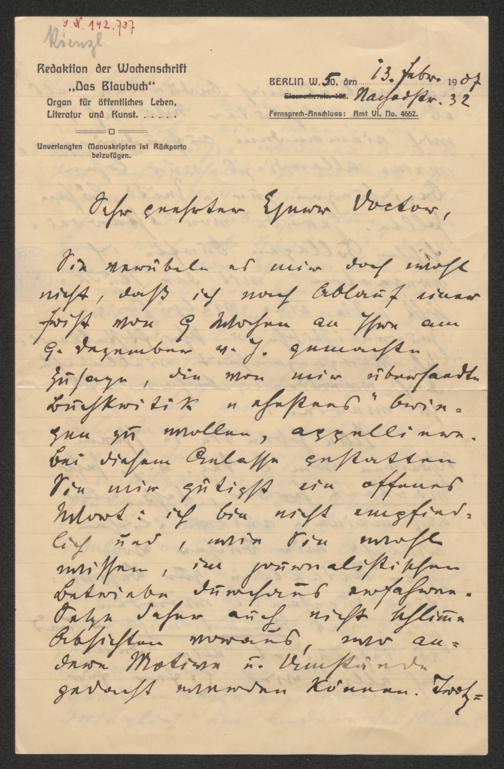 I N. 142.737
Kienzl
Redaktion der Wochenschrift
„Das Blaubuch“
Organ für öffentliches Leben,
Literatur und Kunst. . . . . .
Unverlangten Manuskripten ist Rückporto
beizufügen.
BERLIN W. 50, den 13. Febr. 1907
Nachodstr. 32
Fernsprech-Anschluss: Amt VI, No. 4662.
Sehr geehrter Herr Doctor,
Sie verübeln es mir doch wohl
nicht, daß ich nach Ablauf einer
Frist von 9 Wochen an Ihre am
9. Dezember v. J. gemachte
Zusage, die von mir übersandte
Buchkritik „ehestens“ brin-
gen zu wollen, appelliere.
Bei diesem Anlasse gestatten
Sie mir gütigst ein offenes
Wort: ich bin nicht empfind-
lich und, wie Sie wohl
wissen, im journalistischen
Betriebe durchaus erfahren.
Setze daher auch nicht schlimme
Absichten voraus, wo an-
dere Motive u. Umstände
gedacht werden können. Trotz-